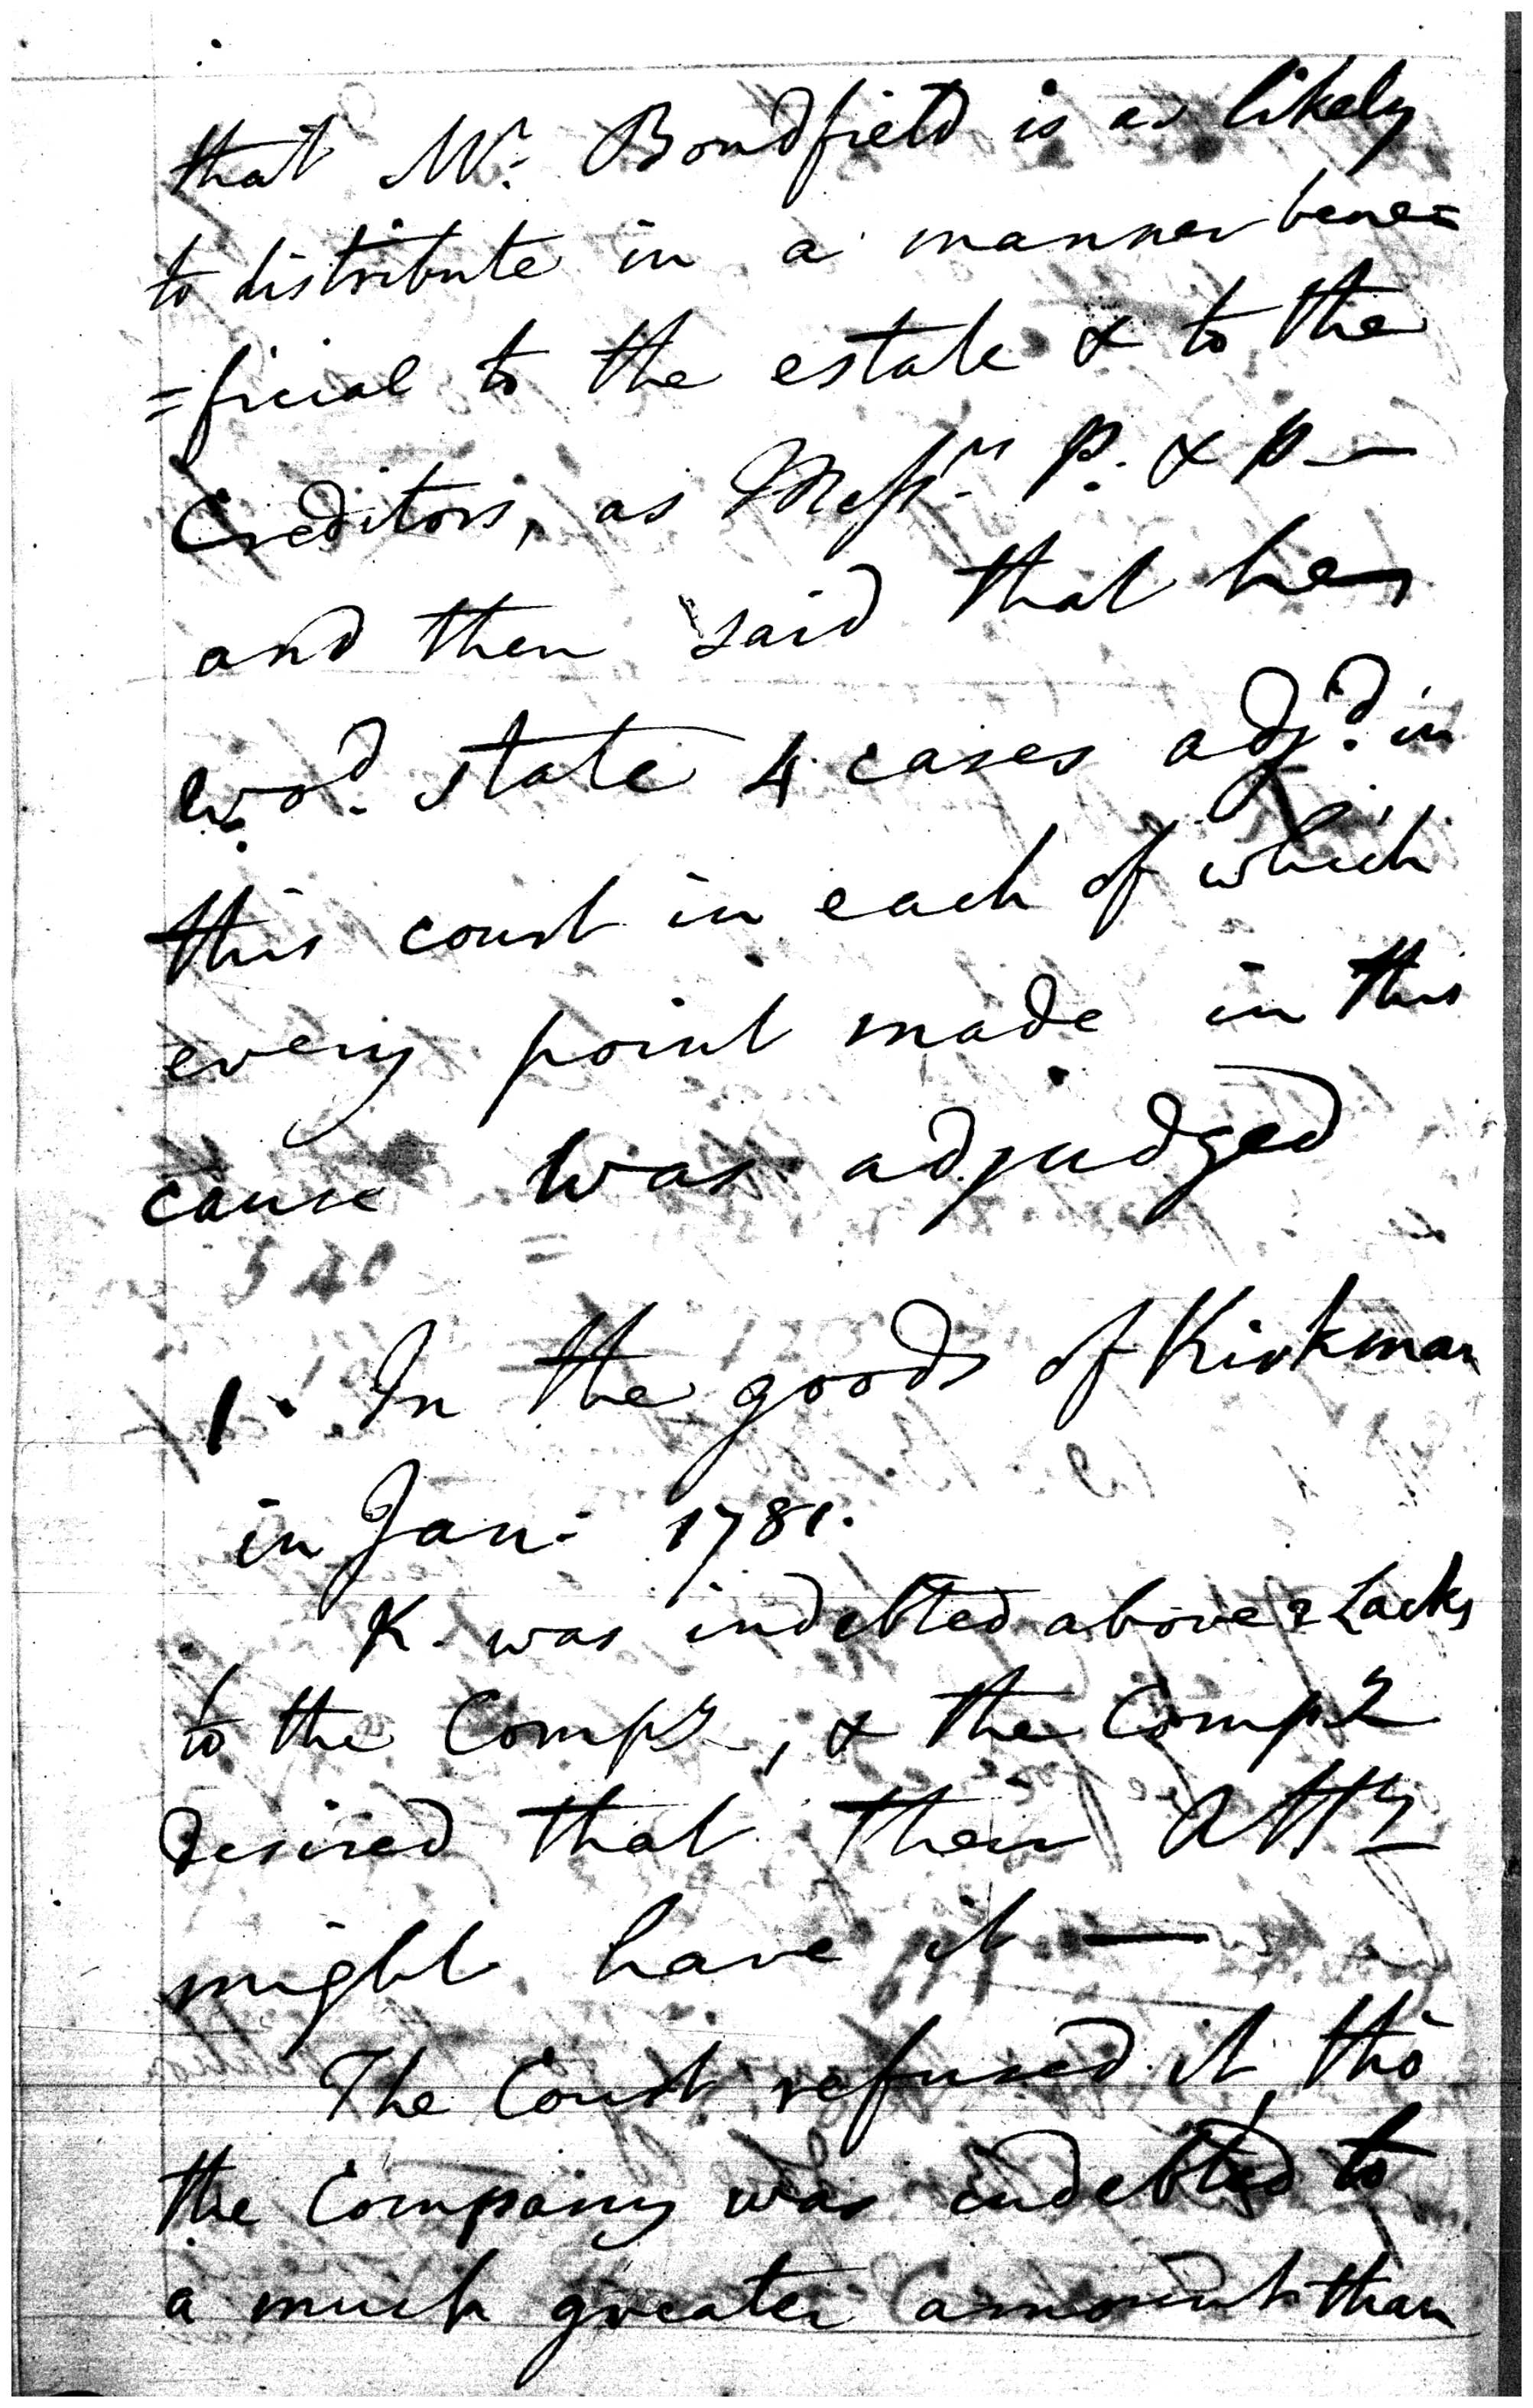 that Mr. Bondfield is as likely
to distribute in a manner bene=
=ficial to the estate & to the
Creditors, as Messrs. P. & P —
and then said that he
wod. state 4 cases adjd. in
this court in each of which
every point made in this
cause was adjudged
1. In the goods of Kirkman
in Jan: 1781.
K. was indebted above 2 Lacks
to the Compy, & the Compy
desired that their Atty
might have it —
The Court refused it, tho'
the Company was indebted to
a much greater amount than